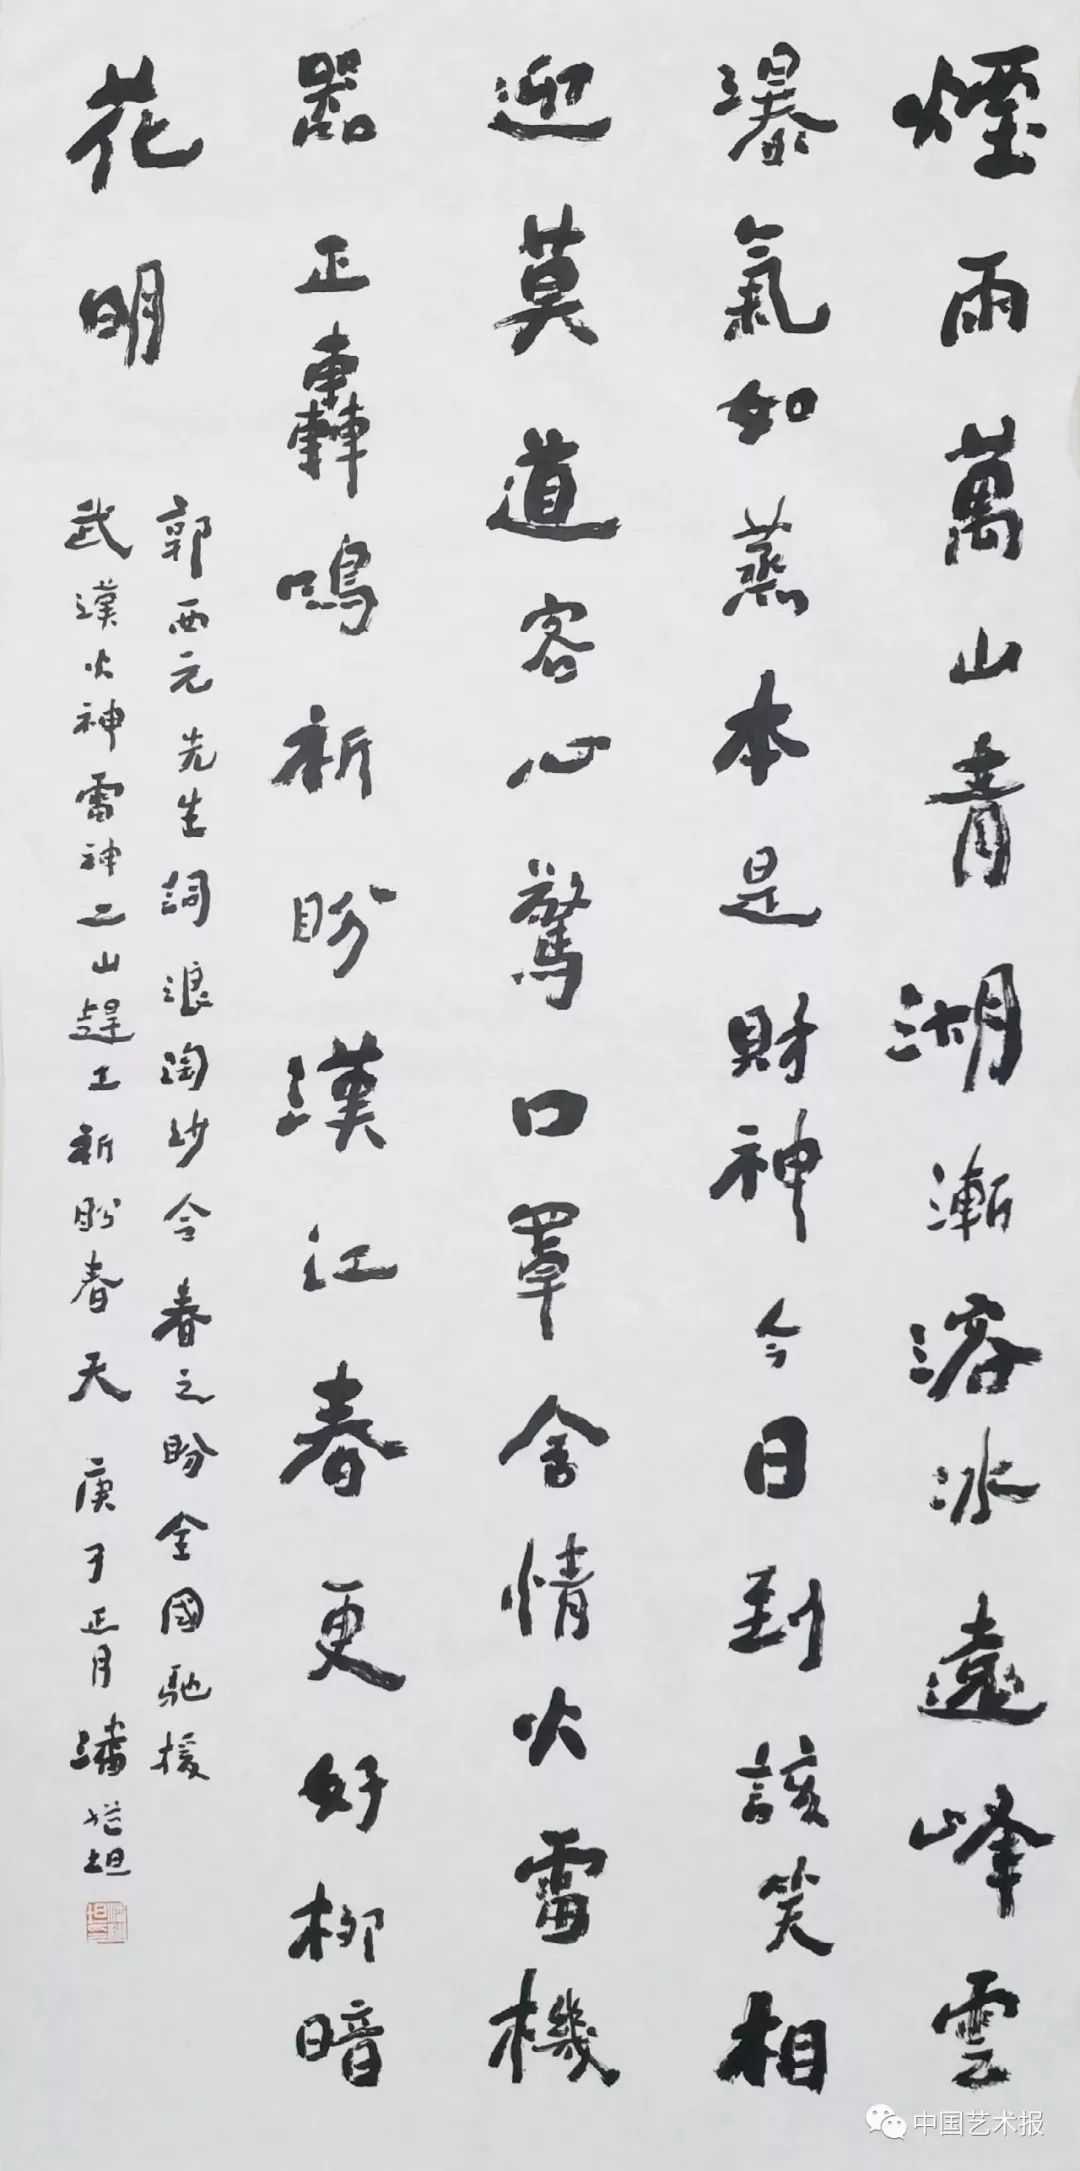 煙雨萬山青湖漸溶冰遠峰雲
瀑氣如蒸本是財神今日到該笑相
迎莫道客心驚口罩含情火雷機
器正轟鳴祈盼漢江春更好柳暗
花明
郭西元先生詞浪淘沙令春之盼全國馳援
武漢火神雷神二山趕工祈盼春天庚子正月潘坦
中国艺术报